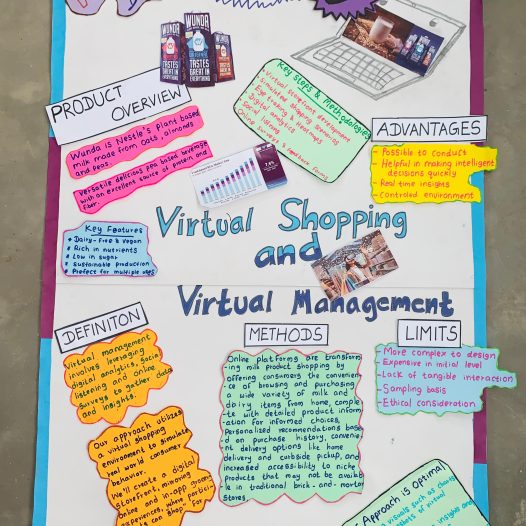 WUNDA
TASTES
GREAT IN
EVERYTHING
WUNDA
TASTES
GREAT IN
EVERYTHING
PRODUCT
OVERVIEW
Wunda is Nestle's plant based
milk made from oats, almonds
and peas.
Versatile delicious pea based beverage
with an excellent source of protein and
fiber.
Key Features
Dairy-Free & Vegan
Rich in nutrients
Low in sugar
Sustainable production
Prefect for multiple uses
Key Steps & Methodologies
Virtual storefront development
Simulated shopping scenarios
Eye tracking & Heatmaps
Digital analytics
Social listening
Online surveys & feedback forms
ADVANTAGES
- Possible to conduct
- Helpful in making intelligent
decisions quickly
- Real time insights
- Controled environment
Virtual Shopping
and
Virtual Management
DEFINITON
Virtual management
involves leveraging
digital analytics, social
listening and online
surveys to gather data
and insights.
Our approach utilizes
a virtual shopping
environment to simulate
real world consumer
behavior.
We'll create a digital
storefront, mimicing
online and in-app grocery
experiences, where partici-
can shop. For
METHODS
Online platforms are transform-
ing milk product shopping by
offering consumers the convenien-
ce of browsing and purchasing
a wide variety of milk and
dairy items from home, comple-
te with detailed product inform
ation for informed choices,
Personalized recommendations based
on purchase history, convenie-
nt delivery options like home
delivery and curbside pickup, and
increased accessibility to niche
products that may not be availab
le in traditional brick-and-mortar
Stores.
LIMITS
- More complex to design
- Expensive in initial level
- Lack of tangible interaction
- Sampling basis
- Ethical consideration
Approach is Optimal
visuals such as charts
of virtual
insights and